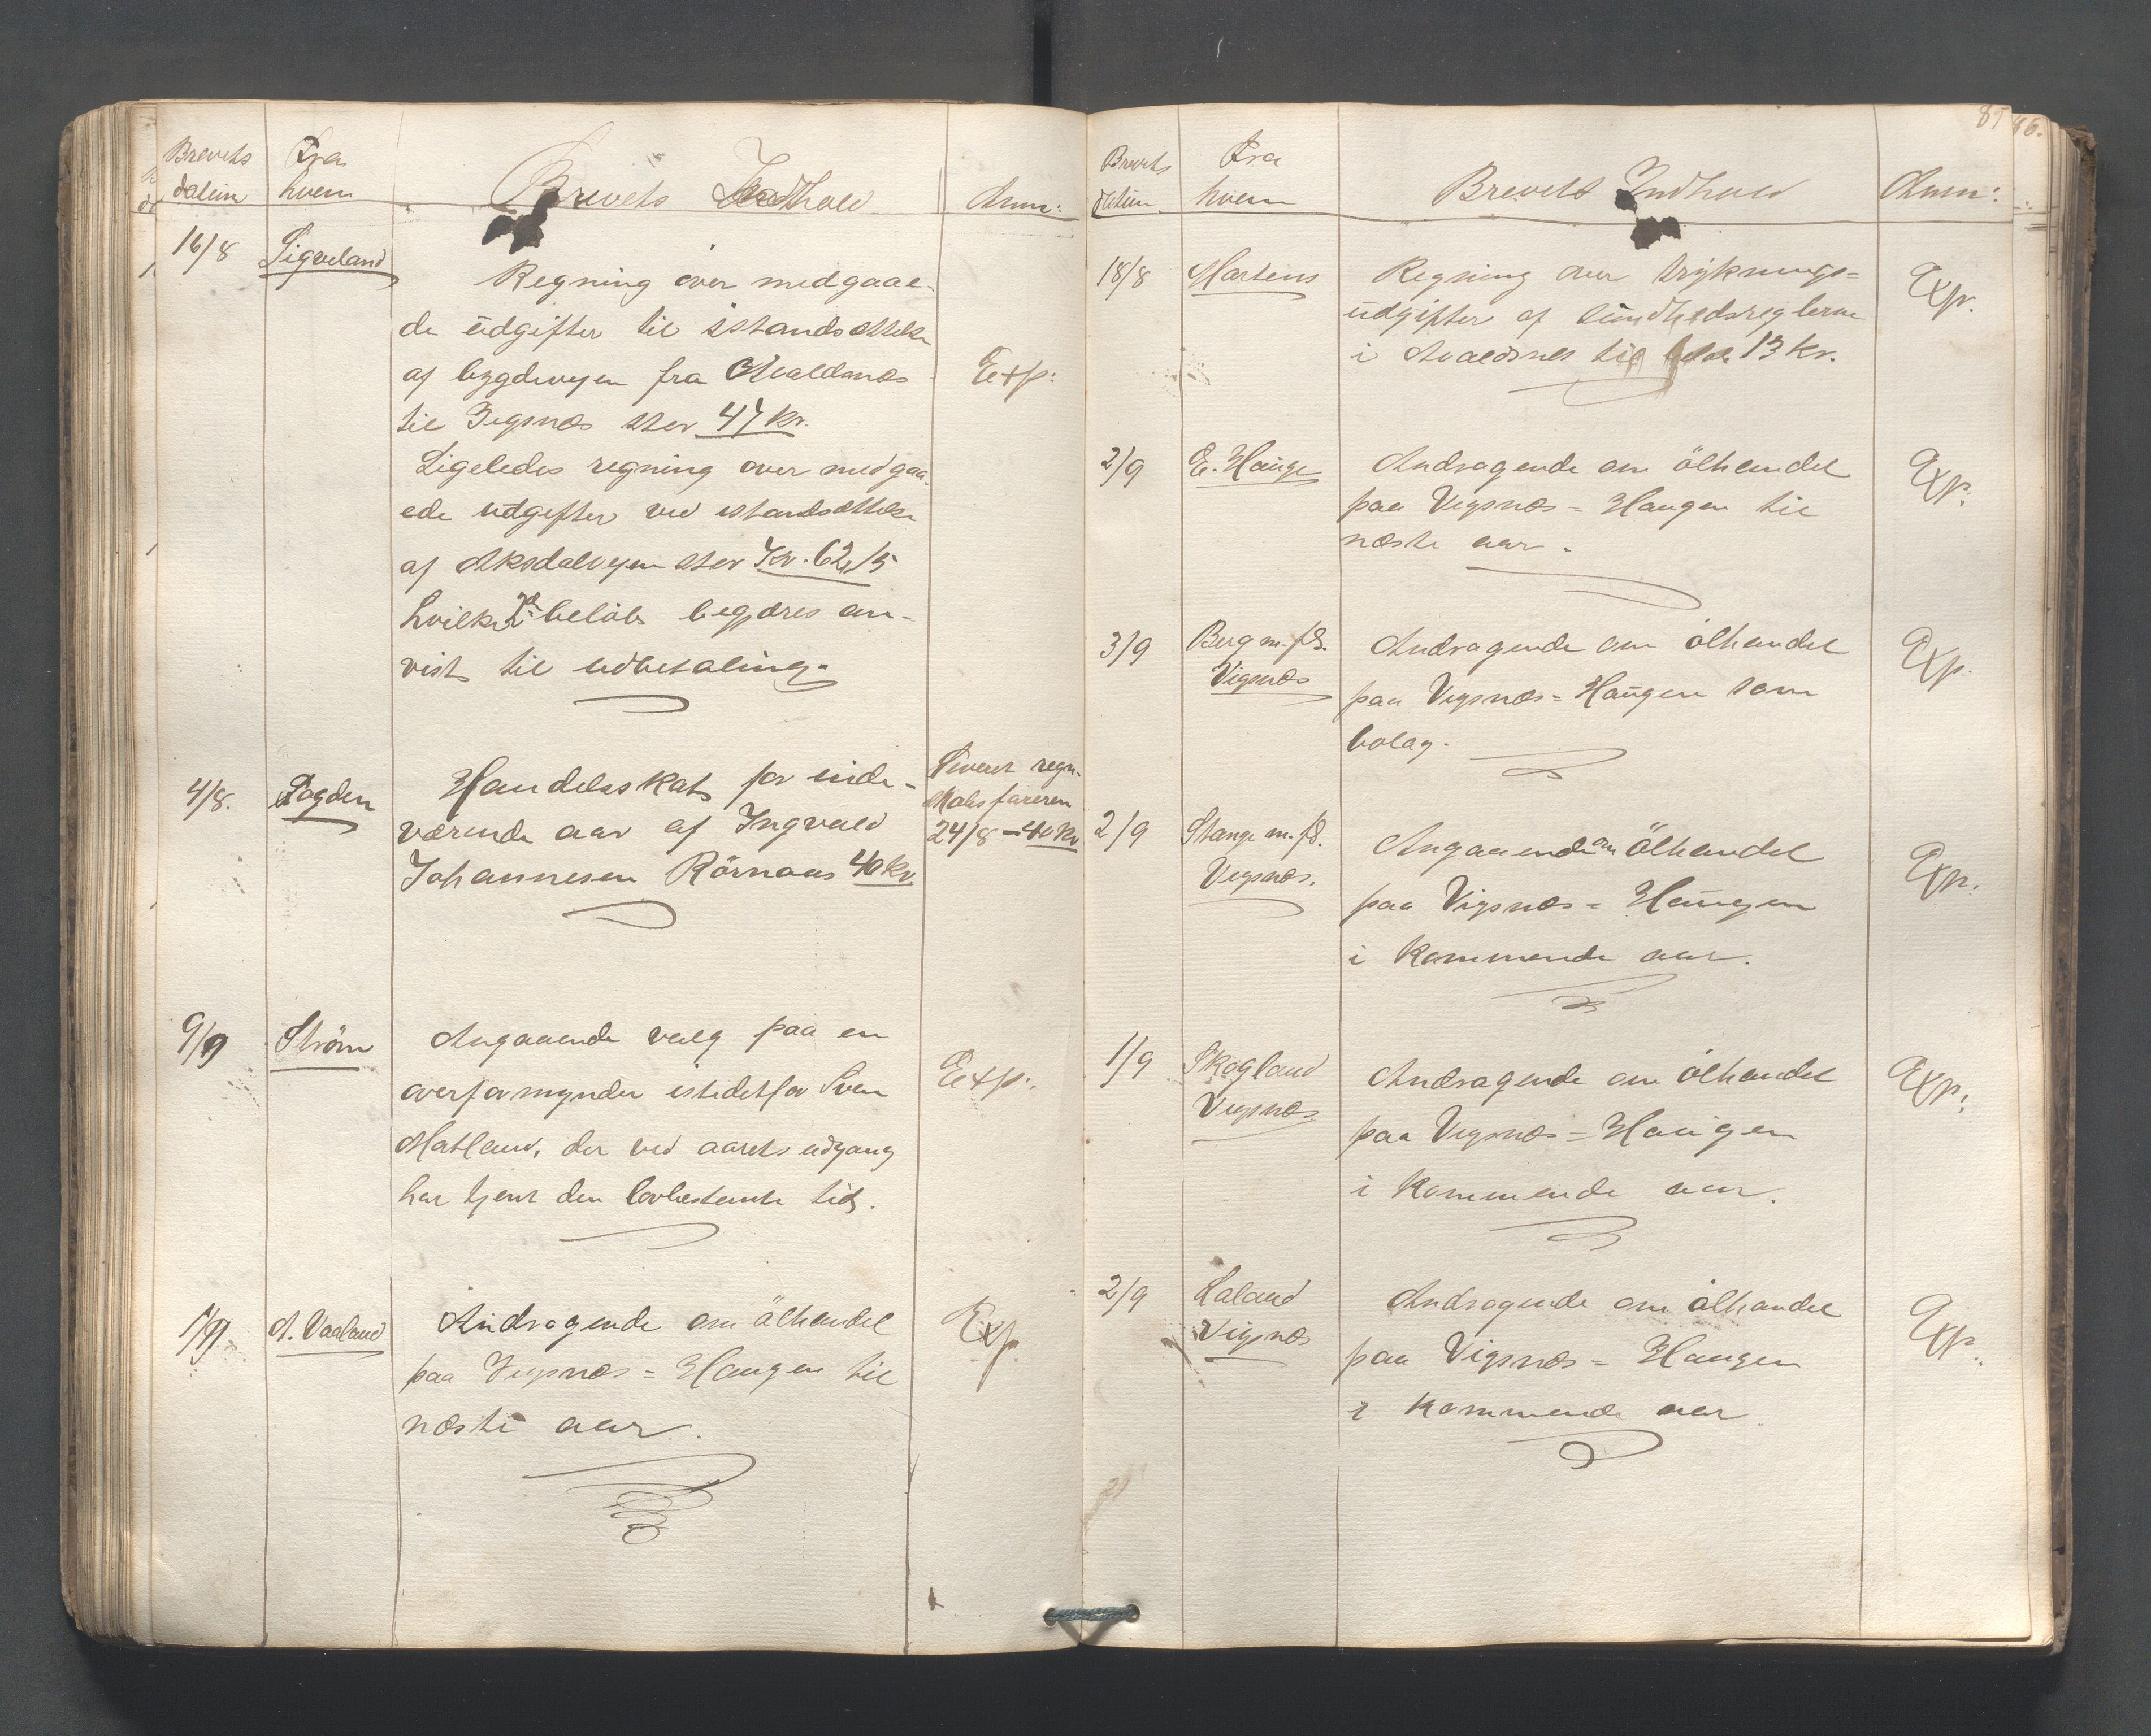 Brevets
datum
Fra
hvem
Brevets Indhold
Anm:
16/8
Sigveland
Regning over medgaae-
de udgifter til istandsættelse
af bygdeveien fra Avaldsnæs
til Vigsnæs stor 47 kr.
Ligeledes regning over medgaa-
ede udgifter ved istandsættelse
af Aksdalveien stor Kr. 62,15
hvilke 2de beløb begjæres an-
vist til udbetaling.
Exp:
4/8.
Fogden
Handelsskat for inde-
værende aar af Ingvald
Johannesen Rörnæs 40 kr
Leveret regn-
skabsføreren
24/8 - 40 kr
9/9
Ström
Angaaende valg paa en
overformynder istedetfor Sven
Matland, der ved aarets udgang
har tjent den lovbestemte tid.
Exp:
1/9
A. Vaaland
Andragende om ölhandel
paa Vigsnæs = Haugen til
næste aar.
Exp.
85
86.
Brevets
datum
Fra
hvem
Brevets Indhold
Anm:
18/8
Martens
Regning over trykknings=
udgifter af sundhedsreglerne
i Avaldsnes til 13 Kr.
Exp.
2/9
E. Hauge
Andragende om ölhandel
paa Vigsnæs = Haugen til
næste aar.
Exp:
3/9
Berg m. fl.
Vigsnæs
Andragende om ölhandel
paa Vigsnæs = Haugen som
bolag.
Exp.
2/9
Stange m. fl.
Vigsnæs.
Angaaende om ölhandel
paa Vigsnæs = Haugen
i kommende aar.
Exp.
1/9
Skogland
Vigsnæs
Andragende om ölhandel
paa Vigsnæs = Haugen
i kommende aar.
Exp:
2/9
Haland
Vigsnæs
Andragende om ölhandel
paa Vigsnæs = Haugen
i kommende aar.
Exp.